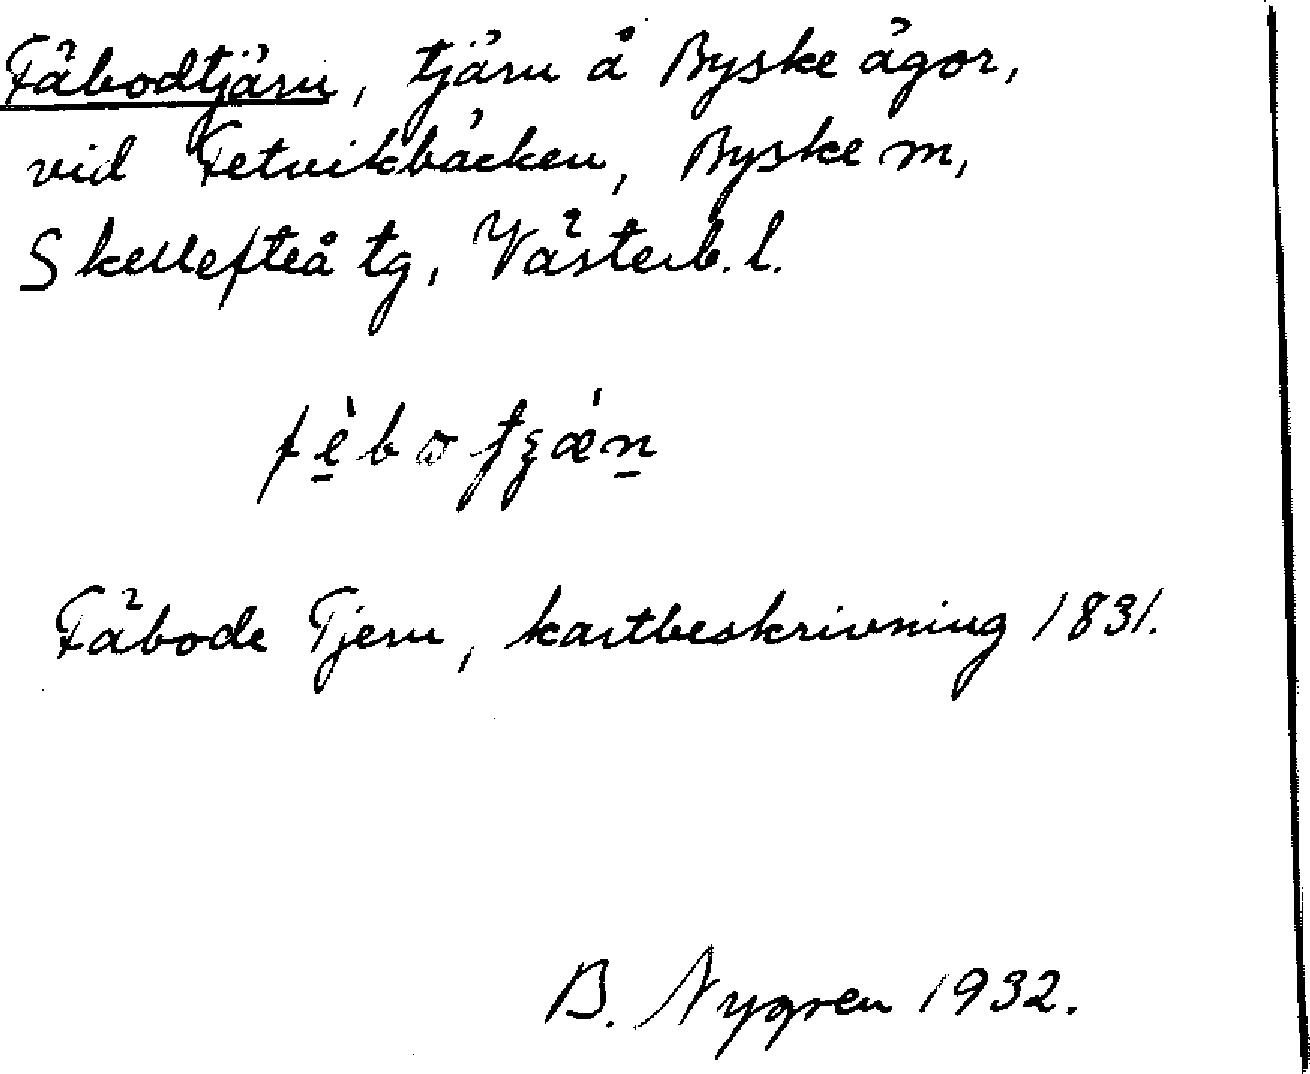 Fäbodtjärn, tjärn å Byske ägor,
vid Fetvikbäcken, Byske sn,
Skellefteå tg, Västerb. l.
Fäbode Tjern, kartbeskrivning 1831.
B. Nygren 1932.